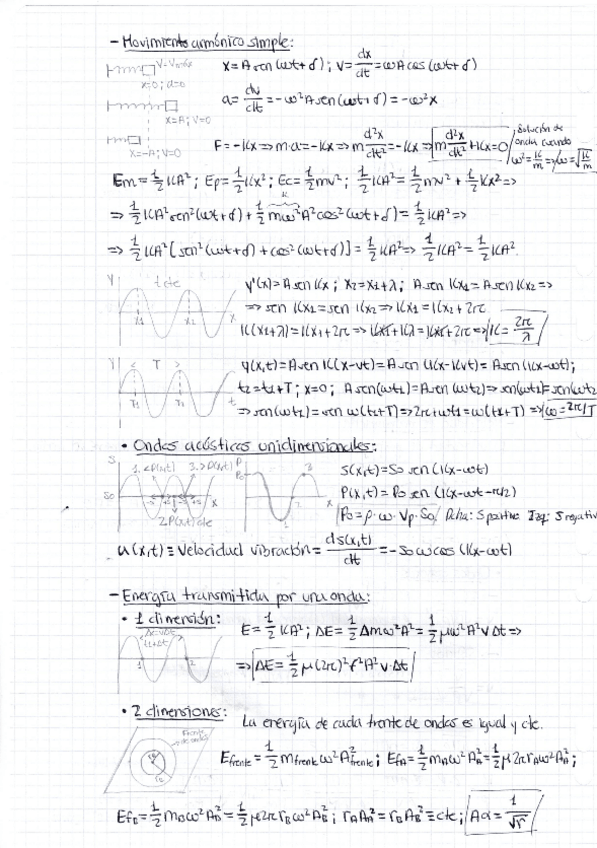 - Movimiento armónico simple:
V=Vmáx
x=0; a=0
x=A; V=0
x=-A; V=0
x=A sen(ωt+δ); v=dx/dt=ωA cos(ωt+δ)
a=dv/dt=-ω²A sen(ωt+δ)=-ω²x
F=-Kx⇒m·a=-Kx⇒m d²x/dt²=-Kx⇒ m d²x/dt²+Kx=0
Solución de onda cuando ω²=K/m ⇒ω=√(K/m)
Em=1/2 KA²; Ep=1/2 Kx²; Ec=1/2 mv²; 1/2 KA²=1/2 mv²+1/2 Kx²⇒
K
⇒1/2 KA² sen²(ωt+δ)+1/2 mω²A²cos²(ωt+δ)=1/2 KA²⇒
⇒1/2 KA²[sen²(ωt+δ)+cos²(ωt+δ)]=1/2 KA²⇒1/2 KA²=1/2 KA².
Y t cte
x1 x2 x
y(x)=A sen Kx; x2=x1+λ; A sen Kx1=A sen Kx2⇒
⇒sen Kx1=sen Kx2⇒Kx1=Kx2+2π
K(x1+λ)=Kx1+2π⇒Kx1+Kλ=Kx1+2π⇒K=2π/λ
Y T
t
y(x,t)=A sen K(x-vt)=A sen(Kx-Kvt)=A sen(Kx-ωt);
t2=t1+T; x=0; A sen(ωt1)=A sen(ωt2)⇒sen(ωt1)=sen(ωt2
⇒sen(ωt1)=sen ω(t1+T)⇒2π+ωt1=ω(t1+T)⇒ω=2π/T
• Ondas acústicas unidimensionales:
S 1.<P(x,t) 3.>P(x,t) P
So Po
2.P(x,t) cte
x x
S(x,t)=So sen(Kx-ωt)
P(x,t)=Po sen(Kx-ωt-π/2)
Po=ρ·ω·Vp·So Dcha: S positiva Izq: S negativ
u(x,t)≡Velocidad vibración=ds(x,t)/dt=-Soωcos(Kx-ωt)
- Energía transmitida por una onda:
• 1 dimensión:
Δx=vΔt
1 2
E=1/2 KA²; ΔE=1/2 Δmω²A²=1/2 μω²A²vΔt⇒
⇒ΔE=1/2 μ(2π)²f²A²v·Δt
• 2 dimensiones:
La energía de cada frente de ondas es igual y cte.
Frente de ondas
Efrente=1/2 mfrente ω²A²frente; EfA=1/2 mAω²AA²=1/2 μ2πrAω²AA²;
EfB=1/2 mBω²AB²=1/2 μ2πrBω²AB²; rAAA²=rBAB²≡cte; Aα=1/√r